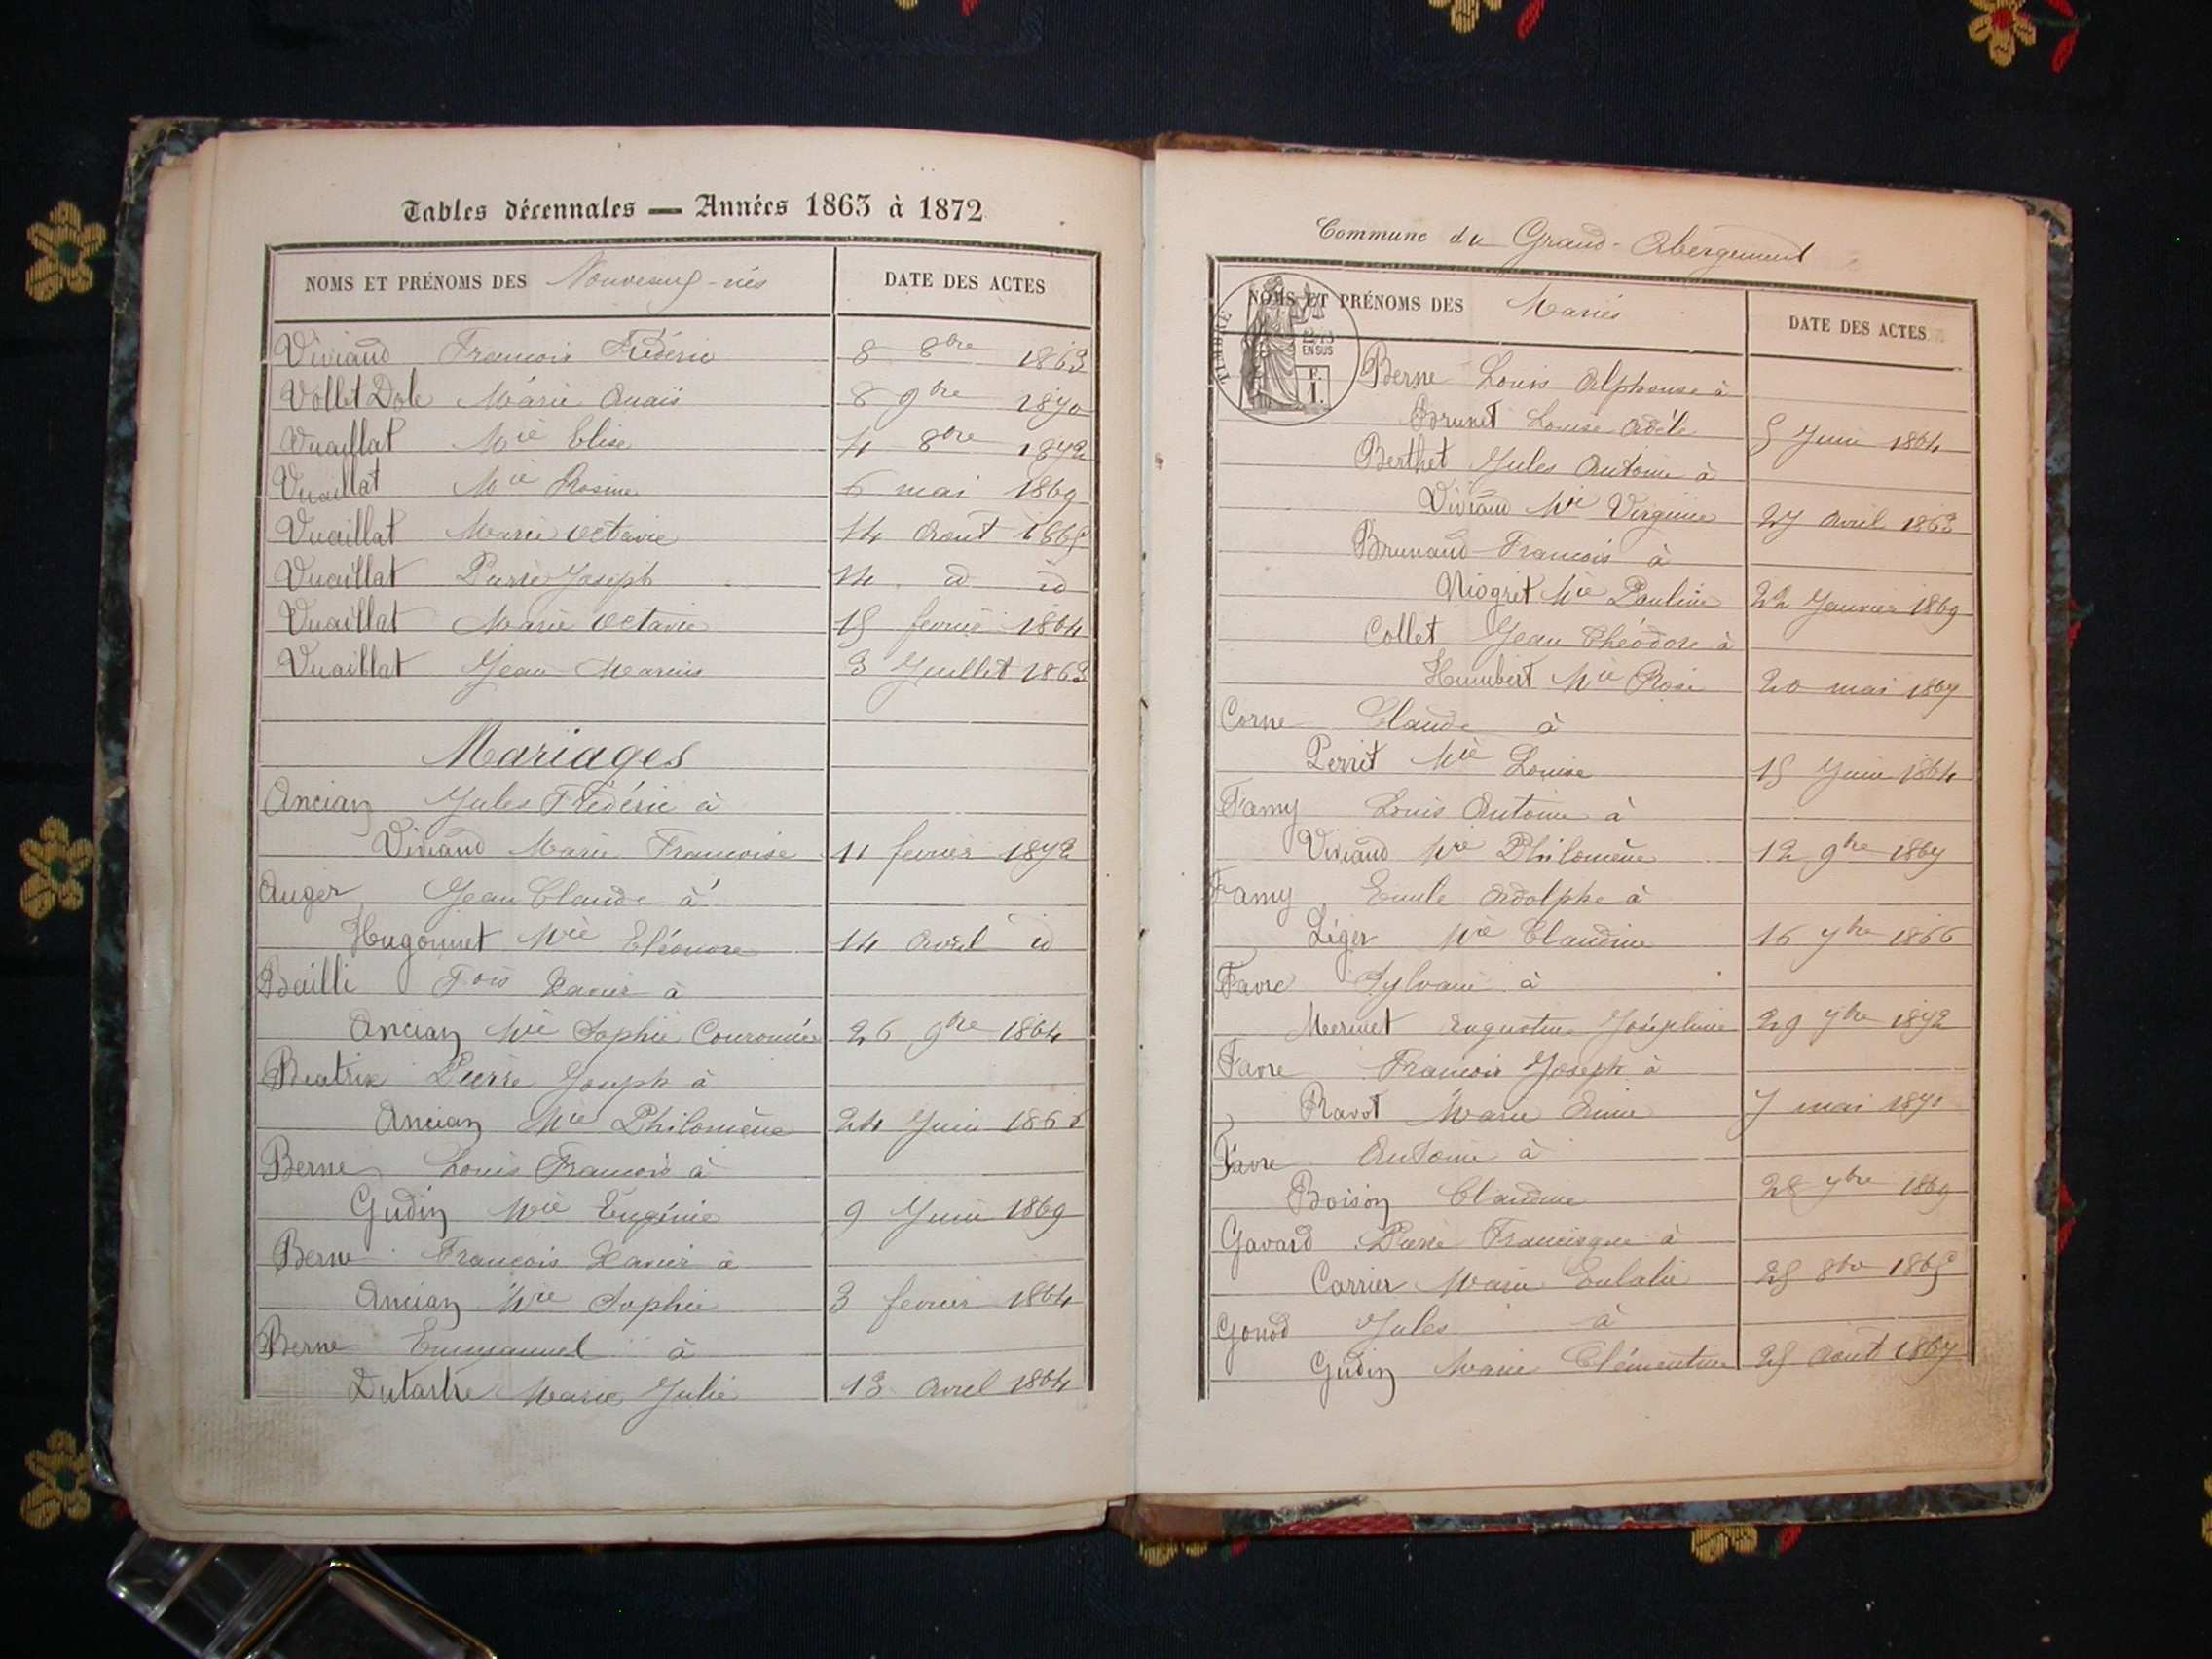 Tables décennales — Années 1863 à 1872
NOMS ET PRÉNOMS DES Nouveaux-nés DATE DES ACTES
Viviand François Frédéric 8 8bre 1863
Vollet Dole Marie Anaïs 8 9bre 1870
Vuaillat Mie Elise 4 8bre 1872
Vuaillat Mie Rosine 6 mai 1869
Vuaillat Marie Octavie 14 Aout 1865
Vuaillat Pierre Joseph 14 id id
Vuaillat Marie Octavie 15 fevrier 1864
Vuaillat Jean Marius 3 Juillet 1863
Mariages
Ancian Jules Frédéric à
Viviand Marie Francoise 11 fevrier 1872
Auger Jean Claude à
Hugonnet Mie Eléonore 14 Avril id
Bailli Fois Xavier à
Ancian Mie Sophie Couronnée 26 9bre 1864
Beatrix Pierre Joseph à
Ancian Mie Philomène 24 Juin 1866
Berne Louis Francois à
Gudin Mie Eugénie 9 Juin 1869
Berne François Xavier à
Ancian Mie Sophie 3 fevrier 1864
Berne Emmanuel à
Dutartre Marie Julie 13 Avril 1864
Commune du Grand-Abergement
NOMS ET PRÉNOMS DES Mariés DATE DES ACTES
TIMBRE
EN SUS
F.
1.
Berne Louis Alphonse à
Brunet Louise Adèle 5 Juin 1864
Berthet Jules Antoine à
Viviand Mie Virginie 27 Avril 1863
Brunaud François à
Niogret Mie Pauline 22 Janvier 1869
Collet Jean Théodore à
Humbert Mie Rose 20 mai 1867
Corne Claude à
Perret Mie Louise 15 Juin 1864
Famy Louis Antoine à
Viviand Mie Philomène 12 9bre 1867
Famy Emile Adolphe à
Léger Mie Claudine 16 7bre 1866
Favre Sylvain à
Mermet Augustine Joséphine 29 7bre 1872
Favre François Joseph à
Ravot Marie 7 mai 1871
Favre Antoine à
Boison Claudine 28 7bre 1869
Gavard Pierre Francisque à
Carrier Marie Eulalie 25 8bre 1865
Gonod Jules à
Gudin Marie Clémentine 25 Aout 1867